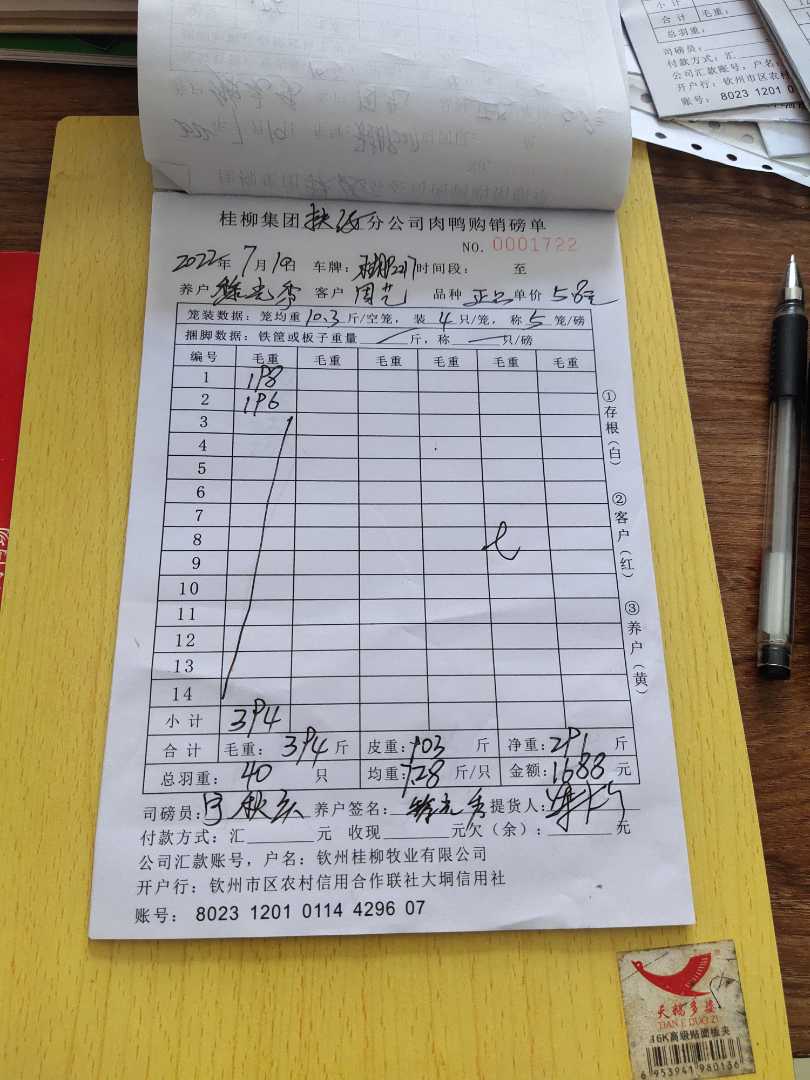 小 计
合 计 毛重：
总羽重：
司磅员：
付款方式：汇
公司汇款账号，户名
开户行：钦州市区农村
账号： 8023 1201 0
桂柳集团 分公司肉鸭购销磅单
NO. 0001722
2022年 7月19日 车牌： 时间段： 至
养户 客户 周艺 品种 正品 单价 5.8元
笼装数据：笼均重 10.3 斤/空笼，装 4 只/笼，称 5 笼/磅
捆脚数据：铁筐或板子重量 斤，称 只/磅
编号 毛重 毛重 毛重 毛重 毛重 毛重
1 198
2 196
3
4
5
6
7
8
9
10
11
12
13
14
小 计 394
合 计 毛重：394 斤 皮重：103 斤 净重：291 斤
总羽重：40 只 均重：7.28 斤/只 金额：1688 元
司磅员： 养户签名： 提货人：
付款方式：汇 元 收现 元欠（余）： 元
公司汇款账号，户名：钦州桂柳牧业有限公司
开户行：钦州市区农村信用合作联社大垌信用社
账号： 8023 1201 0114 4296 07
①存根（白）
②客户（红）
③养户（黄）
天福多姿
TIAN F DUO ZI
16K高级贴面板夹
6 953941 980136